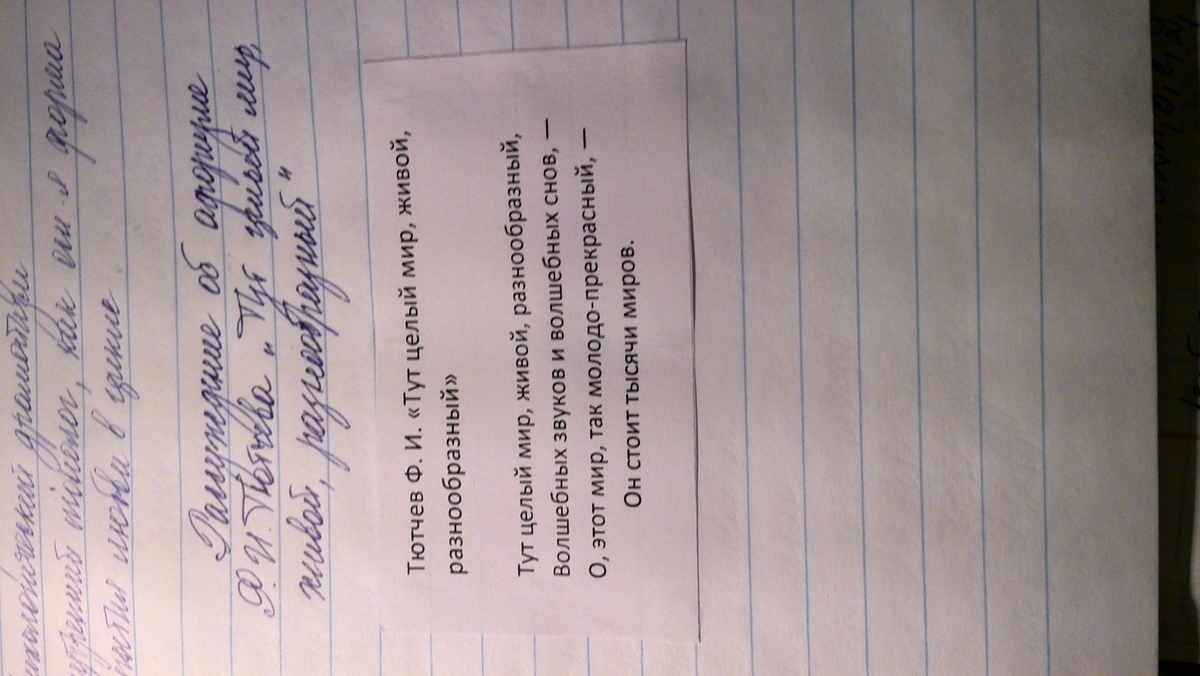 драматизм
монолог, как
любви в цикле
Рассуждение об афоризме
Ф. И. Тютчева „Тут целый мир,
живой, разнообразный"
Тютчев Ф. И. «Тут целый мир, живой,
разнообразный»
Тут целый мир, живой, разнообразный,
Волшебных звуков и волшебных снов, —
О, этот мир, так молодо-прекрасный, —
Он стоит тысячи миров.